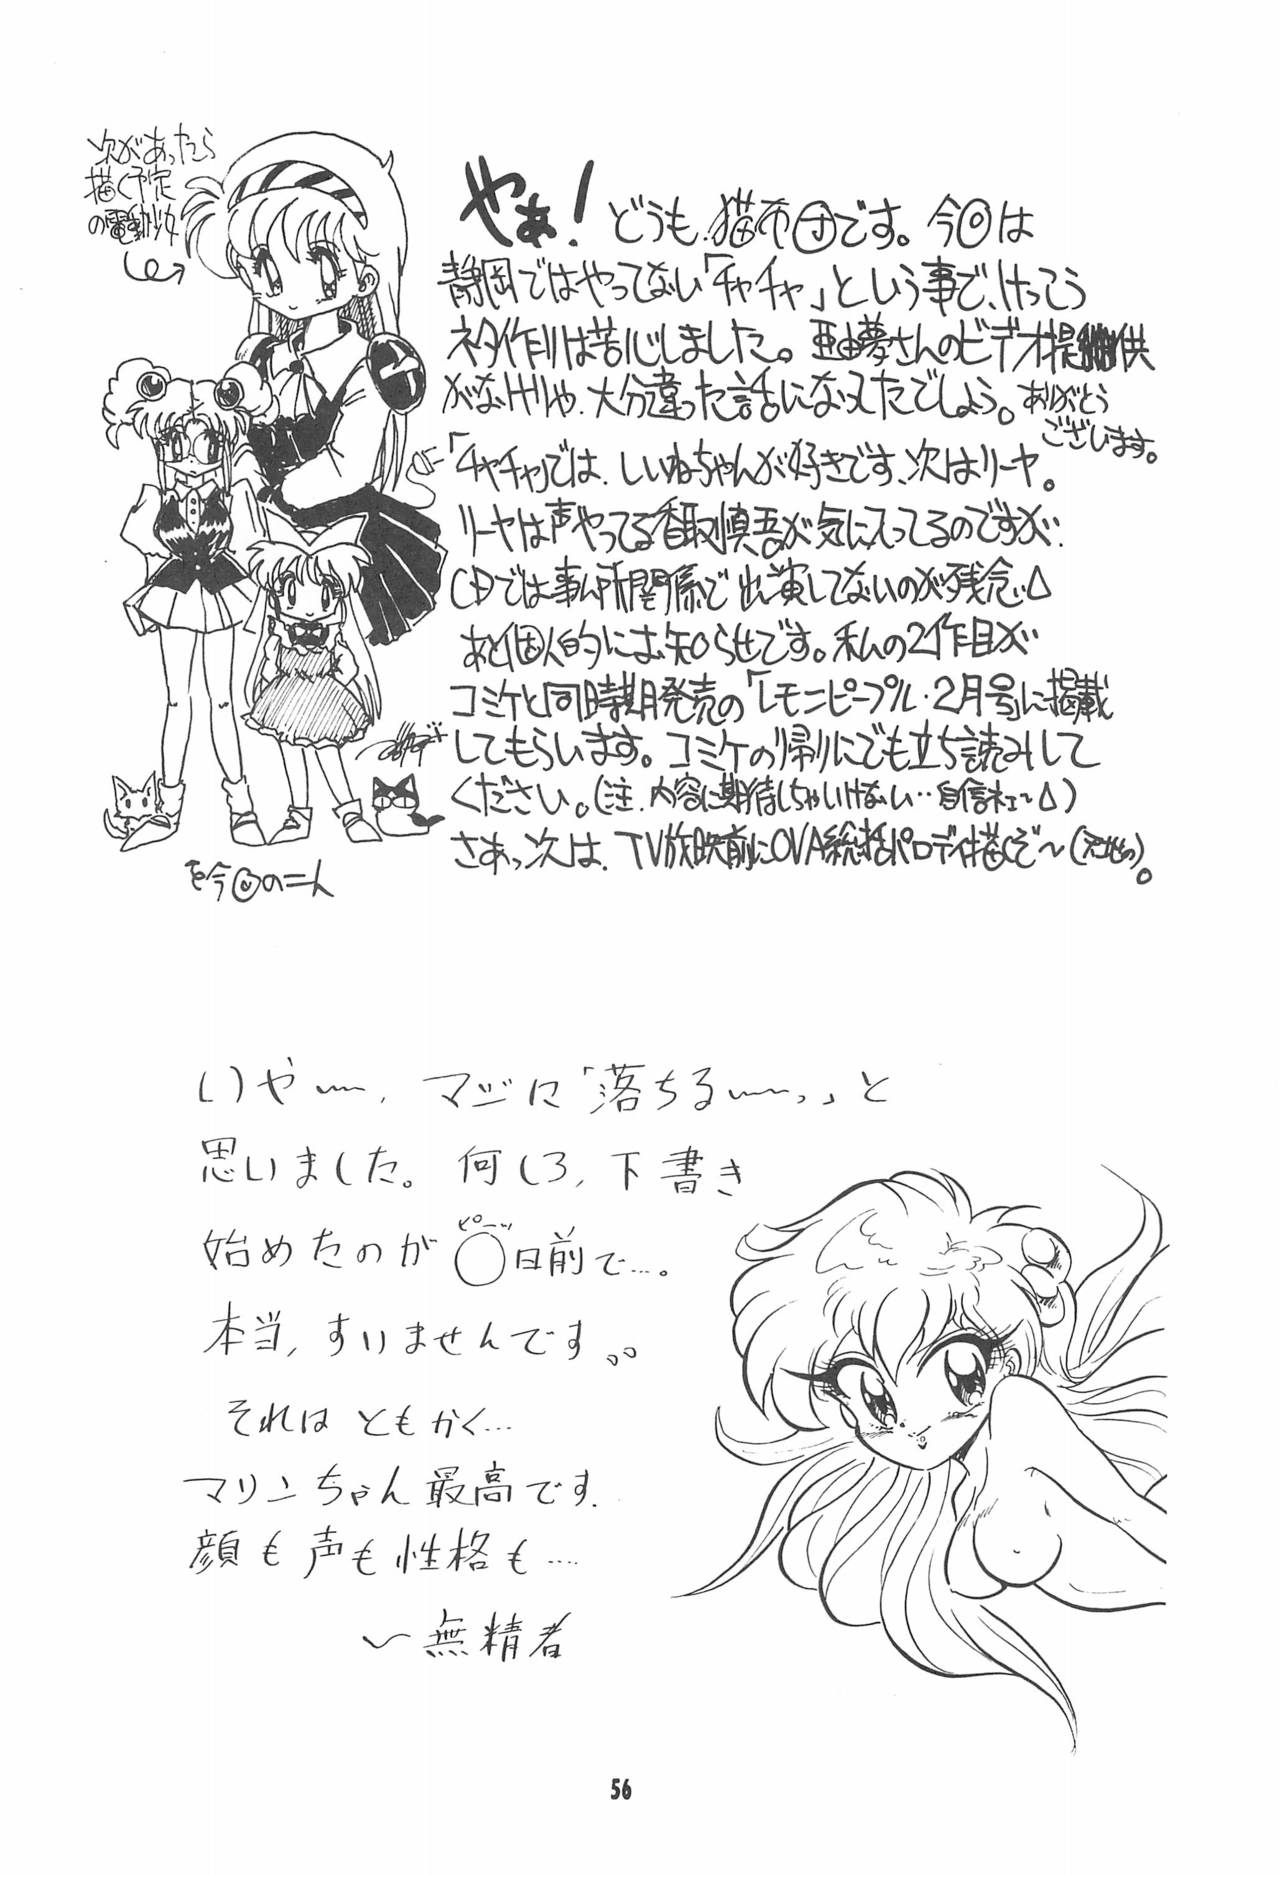 次があったら
描く予定
の電動少女
やぁ！どうも、猫布団です。今回は
静岡ではやってない「チャチャ」という事で、けっこう
ネタ作りは苦心しました。亜由夢さんのビデオ提供
がなけりゃ、大分違った話になってたでしょう。ありがとう
ございます。
「チャチャ」では、しいねちゃんが好きです、次はリーヤ。
リーヤは声やってる香取慎吾が気に入ってるのですが、
CDでは事ム所関係で出演してないのが残念
あと個人的にお知らせです。私の2作目が
コミケと同時期発売の「レモンピープル・2月号」に掲載
してもらいます。コミケの帰りにでも立ち読みして
ください。(注、内容に期待しちゃいけない‥自信ネェ〜)
さあっ次は、TV放映前にOVA総括パロディ描くぞ〜()。
を今回の二人
いや〜、マジに「落ちる〜っ」と
思いました。何しろ、下書き
始めたのが◯日前で…。
ピーッ
本当、すいませんです。。
それはともかく…
マリンちゃん最高です.
顔も声も性格も‥‥
〜無精者
56